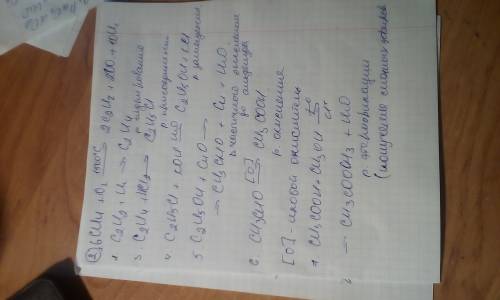 ② 6CH4 + O2 1500°C 2C2H2 + 2CO + 10H2
2 C2H2 + H2 → C2H4
р гидрирования
3 C2H4 + HCl → C2H5Cl
р присоединения
4. C2H5Cl + KOH H2O C2H5OH + KCl
р замещения
5. C2H5OH + CuO →
→ CH3CHO + Cu + H2O
р частичного окисления
до альдегида
6. CH3CHO [O] CH3COOH
р окисления
[O] - окислитель
7 CH3COOH + CH3OH
→ CH3COOCH3 + H2O
р этерификации
(получение сложных эфиров)